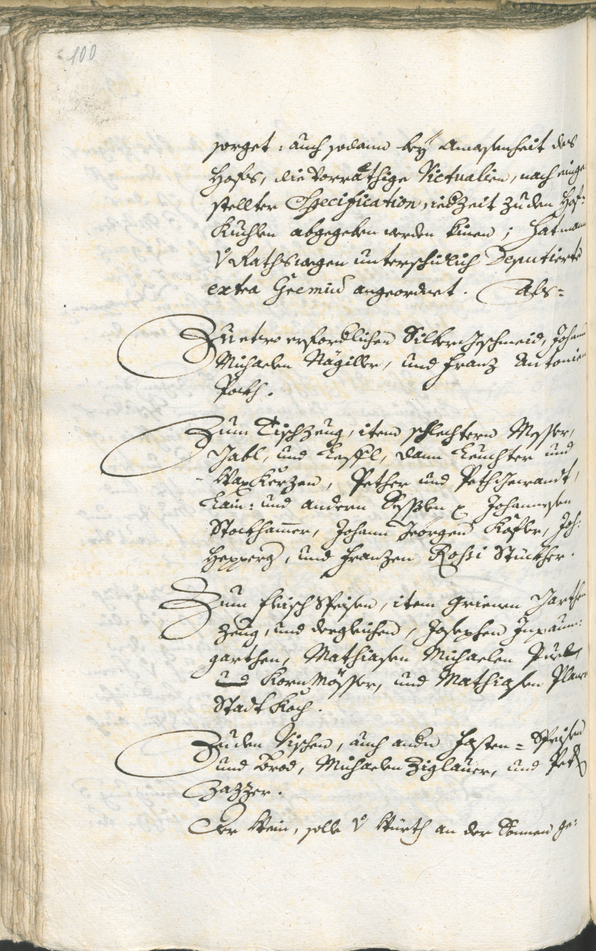 100
sorget: auch sodann bey Anwesenheit des
Hofs, die vorräthige Victualien, nach einge
stellter Specification, iedZeit zu den Hof=
Kuchlen abgegeben werden können; hat man
V. Rathswegen unterschidlich Deputierte
extra Gremiu angeordnet. Als=
Zu etwo erforderlichen Silber Gschmeid, Johann
Michaelen Nägille, und Franz Antonien
Poth.
Zum TischZeug, item schlechtern Messer,
Gabl, und Leffl, dann Leuchter und
WaxKerzen, Pether und Pethgewandt,
Lain= und andern Sesslen Johannesen
Stockhammer, Johann Georgen Kofler, Joh.
Hepperg, und Franzen Rossi Stuckher.
Zum Fleisch Speisen, item grienen Garthen
Zeug, und dergleichen, Josephen Inpaum=
garthen, Mathiasen Michaelen
und KornMösser, und Mathiasen
Stadt Koch.
Zu den Vischen, auch andern Fasten= Speisen
und Brod, Michaelen Ziglauer, und Peter
Zazzer.
Der Wein, solle V. Würth an der Sonnen ge=